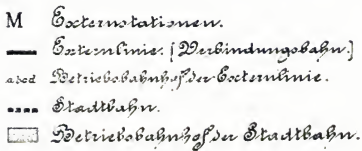 M Externstationen.
Externlinie. [Verbindungsbahn.]
abcd Betriebsbahnhof der Externlinie.
Stadtbahn.
Betriebsbahnhof der Stadtbahn.